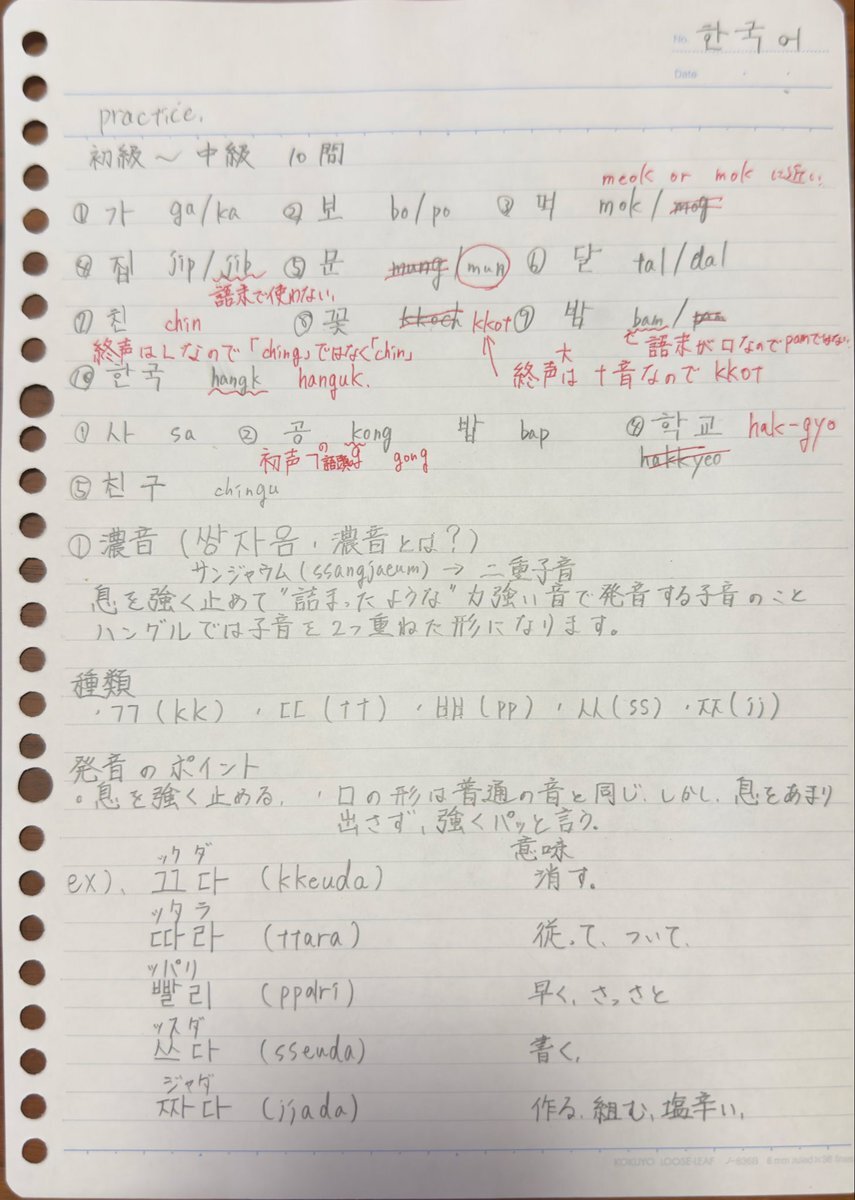 No. 한국어
Date
practice.
初級〜中級 10問
meok or mok に近い.
① 가 ga/ka ② 보 bo/po ③ 먹 mok/mog
④ 집 jip/jib ⑤ 문 mung/mun ⑥ 달 tal/dal
語末で使わない.
⑦ 친 chin ⑧ 꽃 kkoch kkot ⑨ 밤 bam/pam
終声はㄴなので「ching」ではなく「chin」
語末がロなのでpamではない.
終声は十音なので kkot
⑩ 한국 hangk hanguk.
① 사 sa ② 공 kong 밥 bap ④ 학교 hak-gyo
初声ㄱの語頭g gong hakkyeo
⑤ 친구 chingu
① 濃音 (쌍자음・濃音とは?)
サンジャウム (ssangjaeum) → 二重子音
息を強く止めて"詰まったような"力強い音で発音する子音のこと
ハングルでは子音を2つ重ねた形になります。
種類
・ㄲ(kk) ・ㄸ(tt) ・ㅃ(pp) ・ㅆ(ss) ・ㅉ(jj)
発音のポイント
。息を強く止める. ・口の形は普通の音と同じ.しかし.息をあまり
出さず、強くパッと言う。
ックダ 意味
ex). 끄다 (kkeuda) 消す。
ッタラ
따라 (ttara) 従って、ついて.
ッパリ
빨리 (ppalri) 早く,さっさと
ッスダ
쓰다 (sseuda) 書く,
ジャダ
짜다 (jjada) 作る.組む,塩辛い,
KOKUYO LOOSE-LEAF